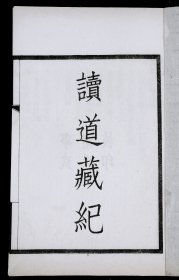 讀道藏紀